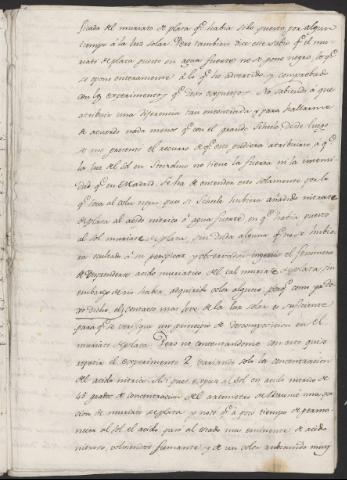 ficado del muriato de plata qe. habia sido puesto por algun
tiempo a la luz solar. Pero tambien dice este sabio qe. el mu-
riato de plata puesto en agua fuerte no se pone negro, lo qe.
se opone enteramente á lo qe. he advertido, y comprobado
con los experimentos, qe. dexo expuestos. No sabiendo á que
atribuir una diferencia tan encontrada, y para hallarme
de acuerdo nada menos qe. con el grande Scheele, desde luego
se me presentó el recurso de qe. esto pudiera atribuirse á qe.
la luz del sol en Stockolmo no tiene la fuerza ni la intensi-
dad qe. en Madrid. Se ha de entender esto solamente por lo
qe. toca al color negro, pues si Scheele hubiera añadido nitrate
de plata al acido nitrico ó agua fuerte, en qe. habia puesto
al sol muriate de plata, sin duda alguna qe. no se hubie-
ra ocultado á su perspicaz y observador ingenio el fenomeno
de desprenderse acido muriatico del tal muriate de plata, sin
embargo de no haber adquirido color alguno; porqe. como ya de-
xo dicho, el contacto mas leve de la luz solar es suficiente
para qe. se verifique un principio de decomposicion en el
muriate de plata. Pero no contentandome con esto quise
repetir el experimento 2 variando solo la concentracion
del acido nitrico. Asi pues expuse al sol en acido nitrico de
48 grados de concentracion del areometro de Beaumé una por-
cion de muriato de plata, y noté qe. á poco tiempo de perma-
necer al sol el acido, pasó al estado mas eminente de acido
nitroso, volviendose fumante, y de un color anaranjado muy